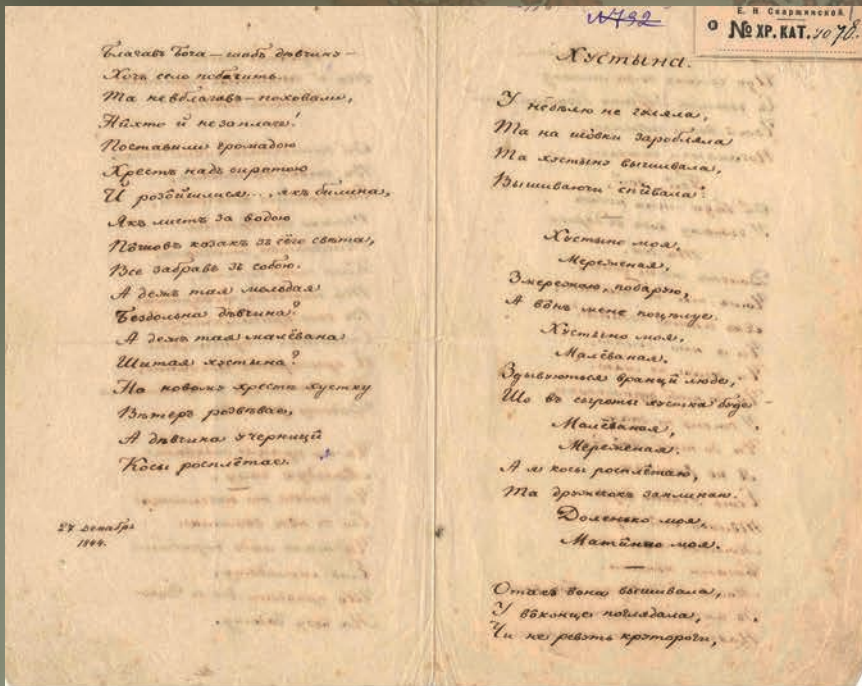 Благавъ Бога — щобъ дѣвчину —
Хочь село побачить
Та не вблагавъ — поховали,
Нихто й незаплаче!
Поставили громадою
Хрестъ надъ сиротою
И розійшлися..., якъ билина,
Якъ листъ за водою
Пішовъ козакъ зъ сёго свѣта,
Все забравъ зъ собою.
А дежъ тая молодая
Бездольна дѣвчина?
А дежъ тая малёвана
Шитая хустына?
На новомъ хрестѣ хустку
Вѣтеръ розвѣвае,
А дѣвчина у черници
Косы росплѣтае.
27 Декабря
1844.
№792
Е. Н. Скаржинской.
№ ХР. КАТ. 1078.
Хустына.
У недѣлю не гуляла,
Та на шовки заробляла
Та хустыну вышивала,
Вышиваючи спивала:
Хустыно моя,
Мереженая,
Змережаю, подарую,
А вôнъ мене поцѣлуе.
Хустыно моя,
Малёваная.
Здывуються вранци люде,
Що въ сыроты хустка буде
Малёваная,
Мереженая.
А я косы росплѣтаю,
Та дружокъ заклинаю:
Доленько моя,
Матинко моя.
Отакъ вона вышивала,
У вôконце поглядала,
Чи не ревуть круторогû,